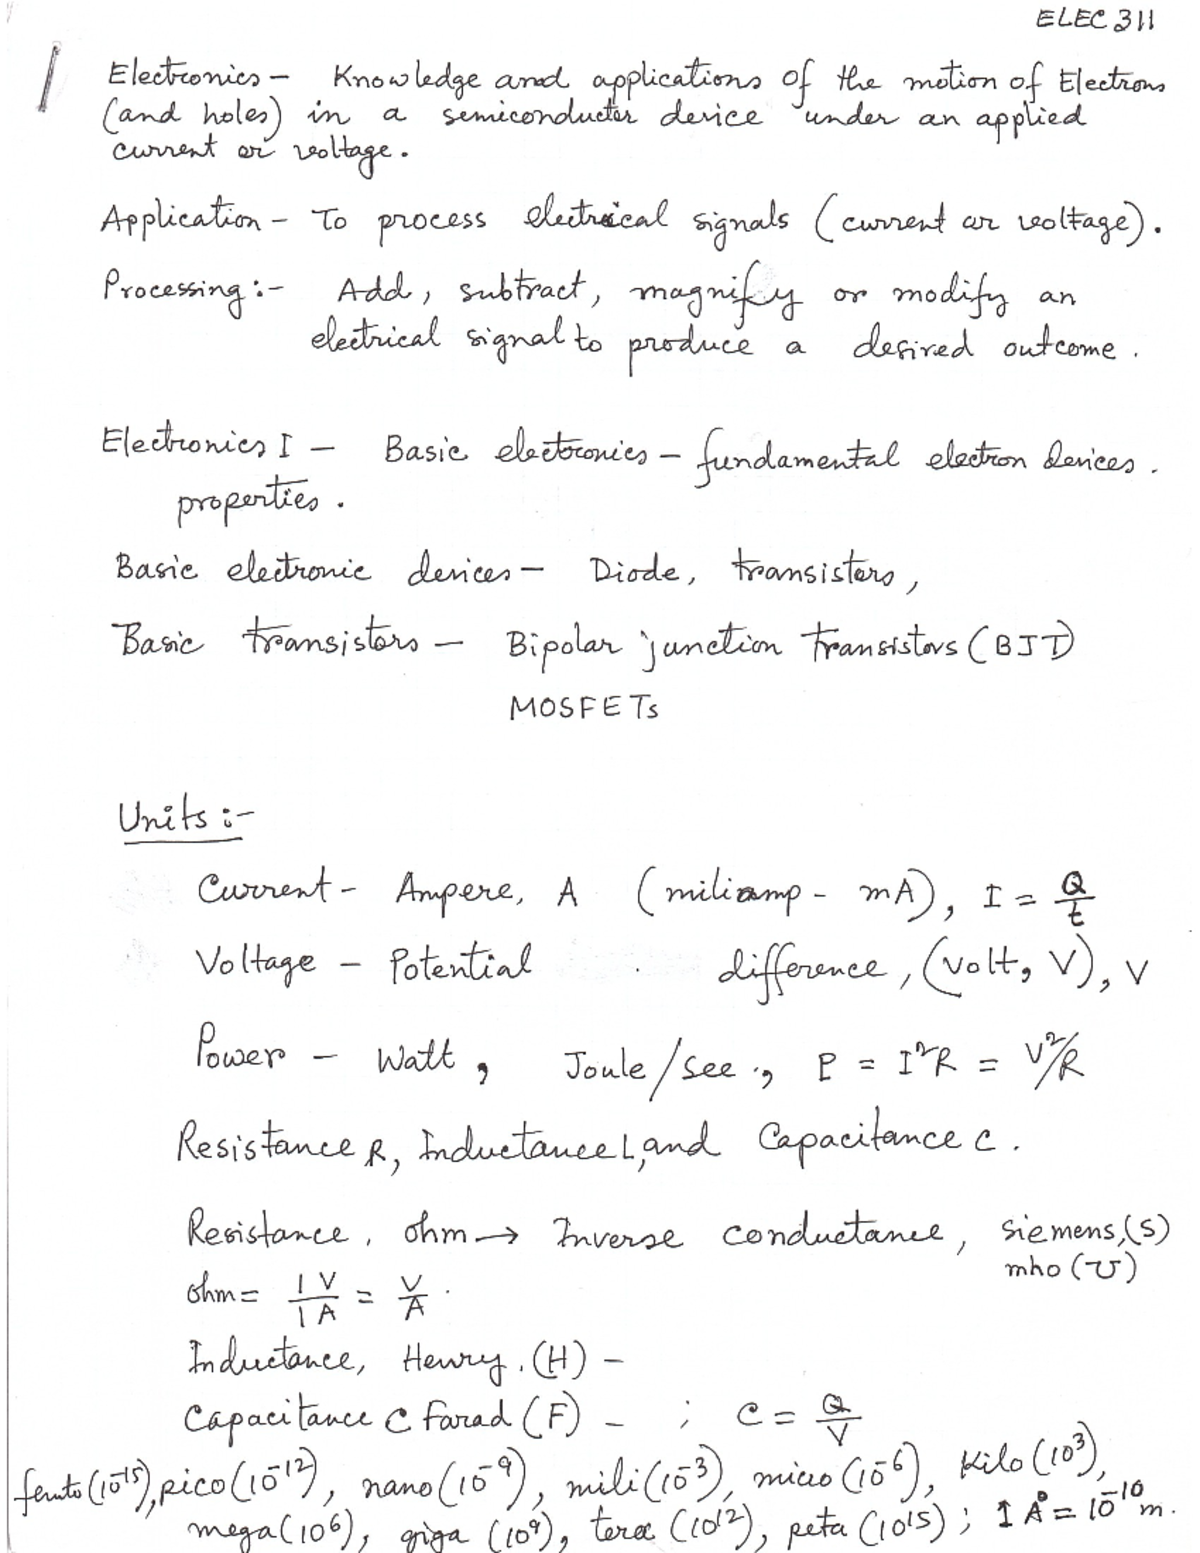 ELEC 311
Electronics – Knowledge and applications of the motion of Electrons
(and holes) in a semiconductor device under an applied
current or voltage.
Application – To process electrical signals (current or voltage).
Processing :- Add, subtract, magnify or modify an
electrical signal to produce a desired outcome.
Electronics I – Basic electronics – fundamental electron devices.
properties.
Basic electronic devices – Diode, transistors,
Basic transistors – Bipolar junction Transistors (BJT)
MOSFETs
Units :-
Current - Ampere, A (miliamp - mA), I = Q/t
Voltage – Potential difference, (volt, V), V
Power – Watt, Joule/sec., P = I²R = V²/R
Resistance R, Inductance L, and Capacitance C.
Resistance, ohm → Inverse conductance, siemens, (S)
mho (℧)
ohm = 1V/1A = V/A.
Inductance, Henry, (H) –
Capacitance C Farad (F) – ; C = Q/V
femto (10⁻¹⁵), pico (10⁻¹²), nano (10⁻⁹), mili (10⁻³), micro (10⁻⁶), Kilo (10³),
mega (10⁶), giga (10⁹), tera (10¹²), peta (10¹⁵) ; 1 Å = 10⁻¹⁰ m.